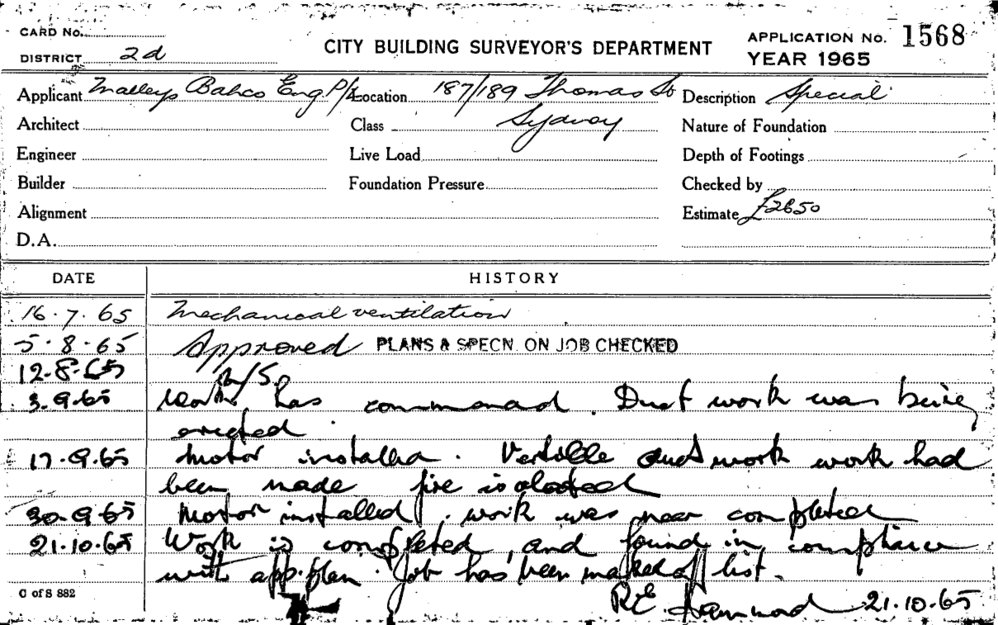 CARD No.
CITY BUILDING SURVEYOR'S DEPARTMENT
APPLICATION No. 1568
DISTRICT 2d
YEAR 1965
Applicant Malleys Bahco Eng P/L Location 187/189 Thomas St Description Special
Architect Class Sydney Nature of Foundation
Engineer Live Load Depth of Footings
Builder Foundation Pressure Checked by
Alignment Estimate £2650
D.A.
DATE HISTORY
16.7.65 Mechanical ventilation
5.8.65 Approved PLANS & SPECN. ON JOB CHECKED
12.8.65
3.9.65 Work has commenced. Duct work was being
erected.
17.9.65 Motor installed. Duct work work had
been made fire isolated
30.9.65 Motor installed. work was near completed
21.10.65 Work is completed, and found in compliance
with app. plan. Job has been marked off list.
C of S 882
21.10.65